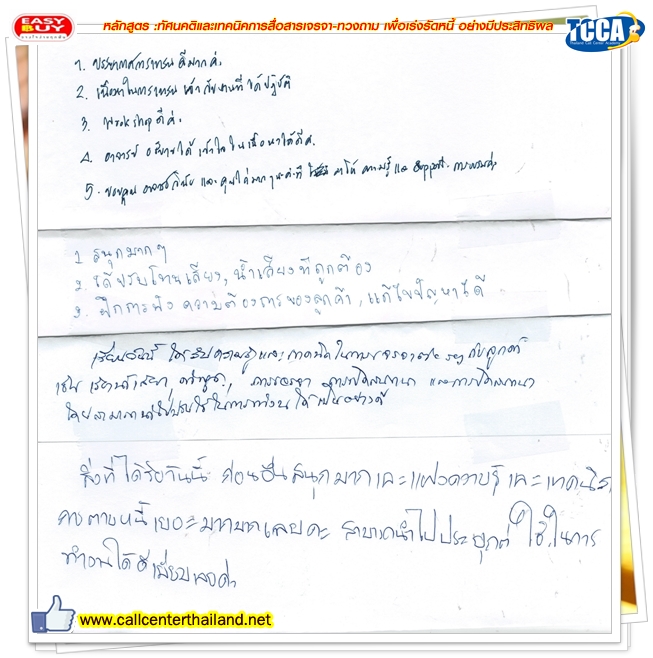 EASY BUY
หลักสูตร :ทัศนคติและเทคนิคการสื่อสารเจรจา-ทวงถาม เพื่อเร่งรัดหนี้ อย่างมีประสิทธิผล
TCCA
Thailand Call Center Academy
1. บรรยากาศการอบรม ดีมากค่ะ
2. เนื้อหาในการอบรม เข้ากับงานที่ได้ปฏิบัติ
3. workshop ดีค่ะ
4. อาจารย์ อธิบายได้ เข้าใจ ในเนื้อหาได้ดีค่ะ
5. ขอบคุณ อาจารย์ และ คุณ มากๆนะคะที่ มาให้ ความรู้ และ support
1. สนุกมากๆ
2. ได้ปรับโทนเสียง, น้ำเสียงที่ถูกต้อง
3. ฝึกการฟัง ความต้องการของลูกค้า, แก้ไขปัญหาได้ดี
เรียนวันนี้ ได้รับความรู้และเทคนิคในการเจรจาต่อรองกับลูกค้า
เช่น เรื่องน้ำเสียง, คำพูด, การเจรจา การเปิดสนทนา และการปิดสนทนา
โดยสามารถนำไปปรับใช้ในการทำงานได้เป็นอย่างดี
สิ่งที่ได้รับวันนี้ ก่อนอื่นสนุกมากและแฝงความรู้ และเทคนิค
การตามหนี้เยอะมากมายเลยค่ะ สามารถนำไปประยุกต์ ใช้ในการ
ทำงานได้ดีเยี่ยมเลยค่ะ
www.callcenterthailand.net